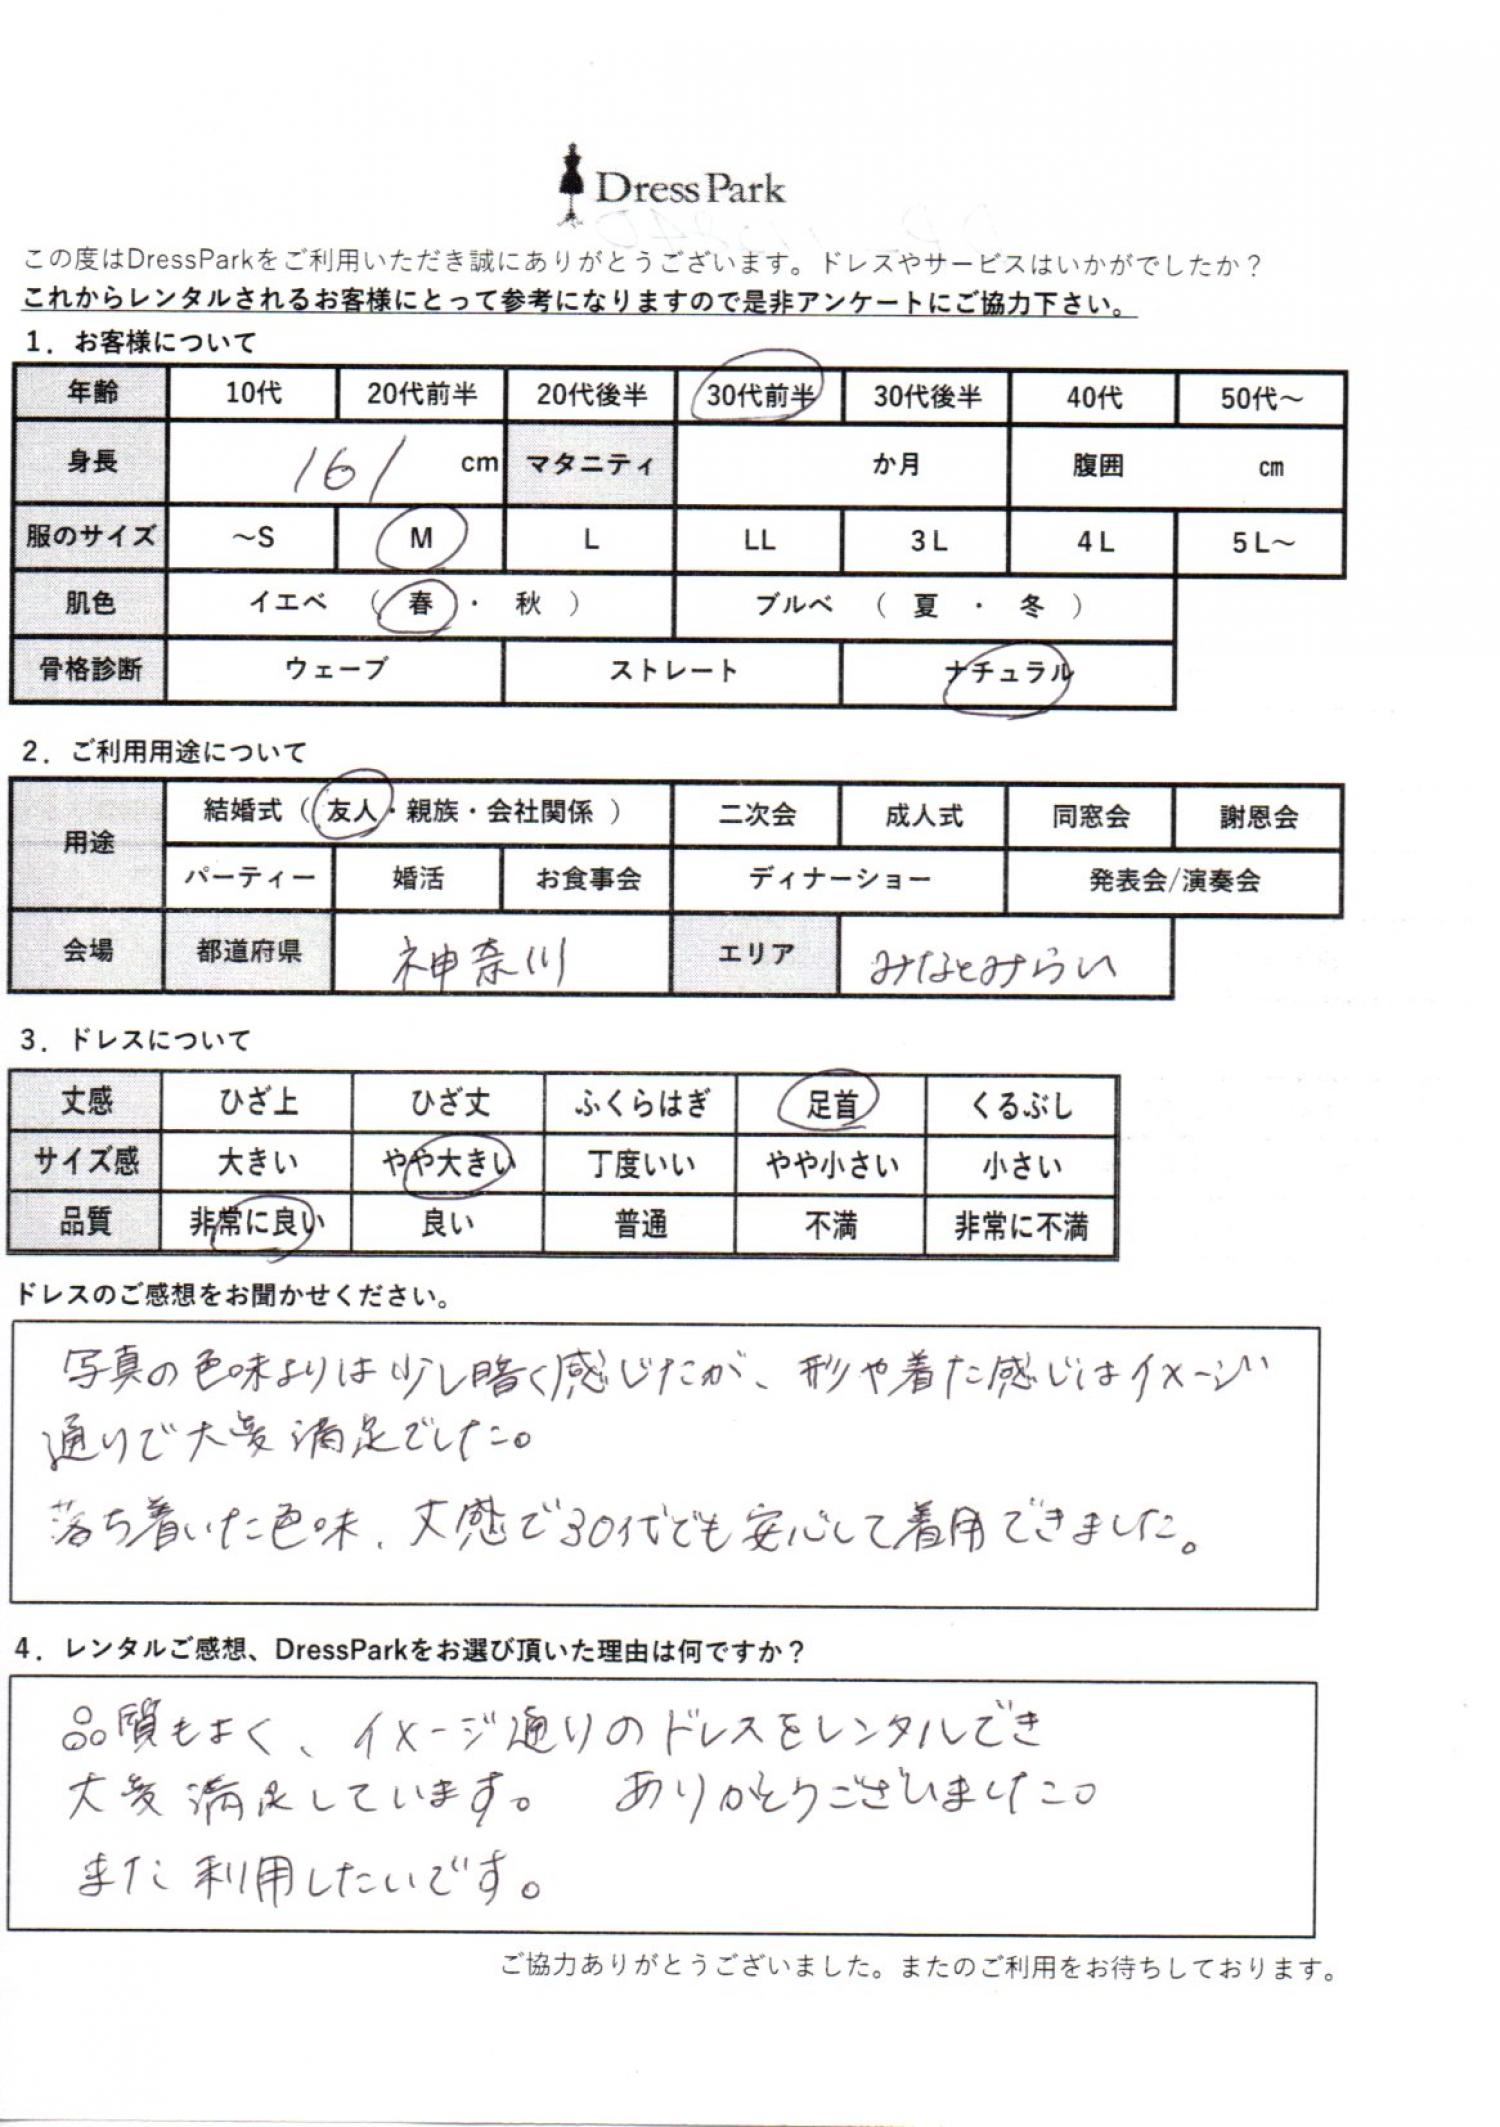 Dress Park
この度はDressParkをご利用いただき誠にありがとうございます。ドレスやサービスはいかがでしたか？
これからレンタルされるお客様にとって参考になりますので是非アンケートにご協力下さい。
1．お客様について
年齢 10代 20代前半 20代後半 30代前半 30代後半 40代 50代～
身長 161 cm マタニティ か月 腹囲 cm
服のサイズ ～S M L LL 3L 4L 5L～
肌色 イエベ （ 春 ・ 秋 ） ブルベ （ 夏 ・ 冬 ）
骨格診断 ウェーブ ストレート ナチュラル
2．ご利用用途について
用途 結婚式（ 友人・親族・会社関係 ） 二次会 成人式 同窓会 謝恩会
パーティー 婚活 お食事会 ディナーショー 発表会/演奏会
会場 都道府県 神奈川 エリア みなとみらい
3．ドレスについて
丈感 ひざ上 ひざ丈 ふくらはぎ 足首 くるぶし
サイズ感 大きい やや大きい 丁度いい やや小さい 小さい
品質 非常に良い 良い 普通 不満 非常に不満
ドレスのご感想をお聞かせください。
写真の色味よりは少し暗く感じたが、形や着た感じはイメージ
通りで大変満足でした。
落ち着いた色味、丈感で30代でも安心して着用できました。
4．レンタルご感想、DressParkをお選び頂いた理由は何ですか？
品質もよく、イメージ通りのドレスをレンタルでき
大変満足しています。 ありがとうございました。
また利用したいです。
ご協力ありがとうございました。またのご利用をお待ちしております。